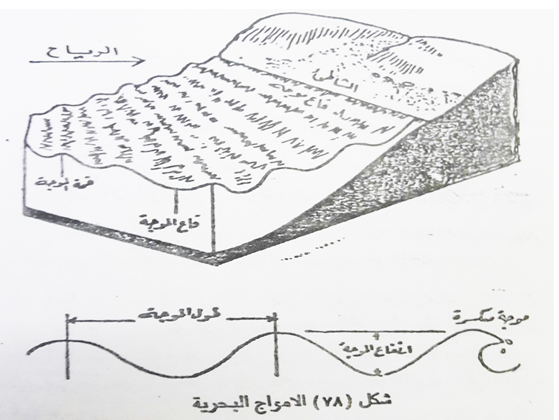 الرياح
الشاطئ
قاع موجة
قمة الموجة
قاع الموجة
طول الموجة
موجة منكسرة
ارتفاع الموجة
شكل (٧٨) الامواج البحرية